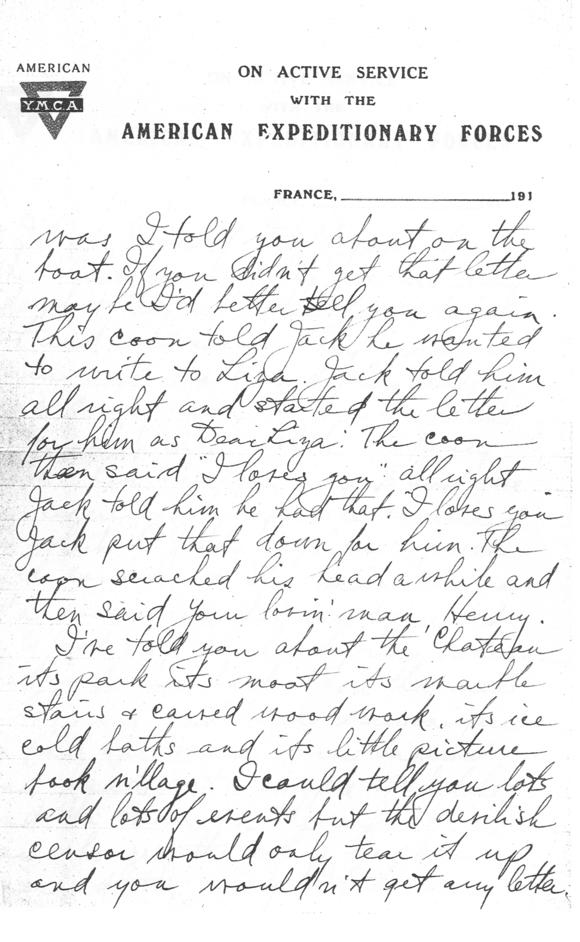 AMERICAN
Y.M.C.A.
ON ACTIVE SERVICE
WITH THE
AMERICAN EXPEDITIONARY FORCES
FRANCE, 191
was I told you about on the
boat. If you didn't get that letter
maybe I'd better tell you again.
This coon told Jack he wanted
to write to Liza. Jack told him
all right and started the letter
for him as Dear Liza: The coon
then said "I loves you" all right
Jack told him he had that. "I loves you
Jack put that down for him. The
coon scrached his head a while and
then said your lovin' man, Henry.
I've told you about the Chateau
its park its moat its marble
stairs & carved wood work, its ice
cold baths and its little picture
book village. I could tell you lots
and lots of events but the devilish
censor would only tear it up
and you wouldn't get any letter.